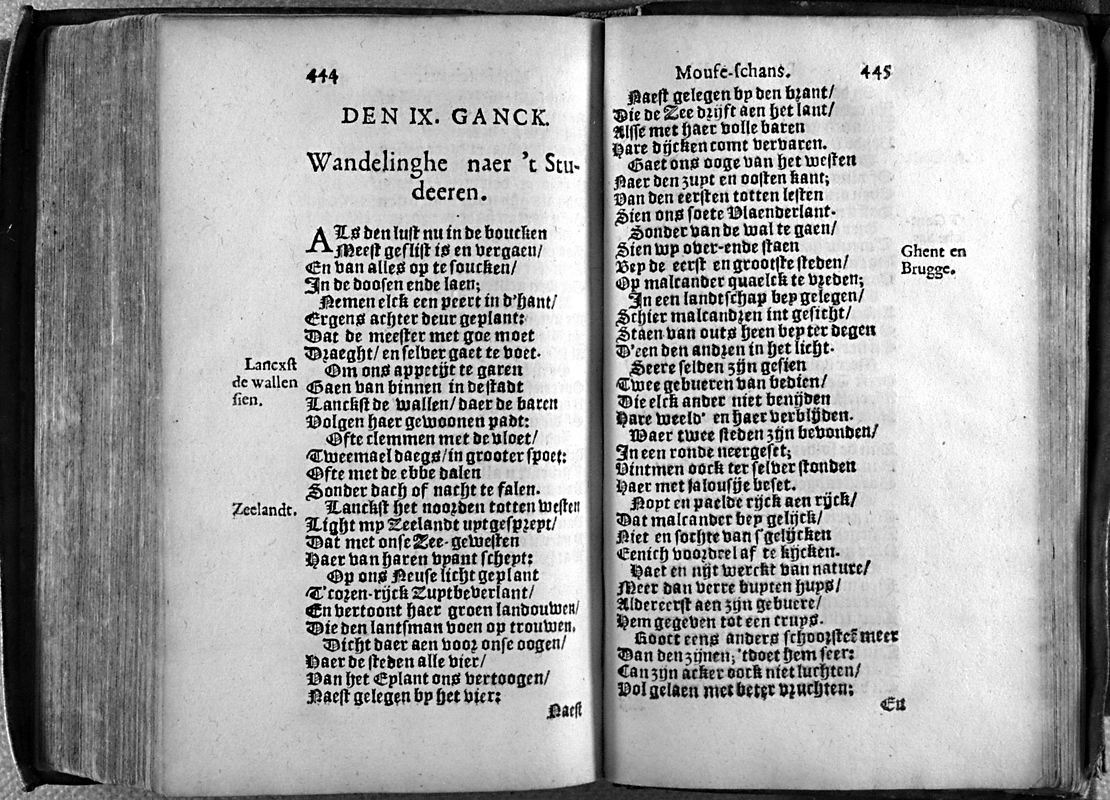 444
DEN IX. GANCK.
Wandelinghe naer 't Stu-
deeren.
ALs den lust nu in de boucken
Meest geslist is en vergaen/
En van alles op te soucken/
In de doosen ende laen;
Nemen elck een peert in d'hant/
Ergens achter deur geplant:
Dat de meester met goe moet
Draeght/ en selver gaet te voet.
Lancxst
de wallen
sien.
Om ons appetijt te garen
Gaen van binnen in de stadt
Lanckst de wallen/ daer de baren
Volgen haer gewoonen padt:
Ofte clemmen met de vloet/
Tweemael daegs/ in grooter spoet:
Ofte met de ebbe dalen
Sonder dach of nacht te falen.
Zeelandt.
Lanckst het noorden totten westen
Light my Zeelandt uytgespreyt/
Dat met onse Zee-gewesten
Haer van haren vyant scheyt:
Op ons Neuse licht geplant
T'coren-rijck Zuytbeverlant/
En vertoont haer groen landouwen/
Die den lantsman voen op trouwen.
Dicht daer aen voor onse oogen/
Haer de steden alle vier/
Van het Eylant ons vertoogen/
Naest gelegen by het vier:
Naest
Mouse-schans. 445
Naest gelegen by den brant/
Die de Zee drijft aen het lant/
Alsse met haer volle baren
Hare dijcken comt vervaren.
Gaet ons ooge van het westen
Naer den zuyt en oosten kant;
Van den eersten totten lesten
Sien ons soete Vlaenderlant.
Sonder van de wal te gaen/
Sien wy over-ende staen
Ghent en
Brugge.
Bey de eerst en grootste steden/
Op malcander quaelck te vreden;
In een landtschap bey gelegen/
Schier malcandren int gesicht/
Staen van outs heen bey ter degen
D'een den andren in het licht.
Seere selden zijn gesien
Twee gebueren van bedien/
Die elck ander niet benijden
Hare weeld' en haer verblijden.
Waer twee steden zijn bevonden/
In een ronde neergeset;
Vintmen oock ter selver stonden
Haer met jalousije beset.
Noyt en paelde rijck aen rijck/
Dat malcander bey gelijck/
Niet en sochte van s'gelijcken
Eenich voordeel af te kijcken.
Haet en nijt werckt van nature/
Meer dan verre buyten huys/
Aldereerst aen zijn gebuere/
Hem gegeven tot een truys.
Roockt eens anders schoorsteē meer
Dan den zijnen; 'tdoet hem seer:
Can zijn acker oock niet luchten/
Vol gelaen met beter vruchten;
En